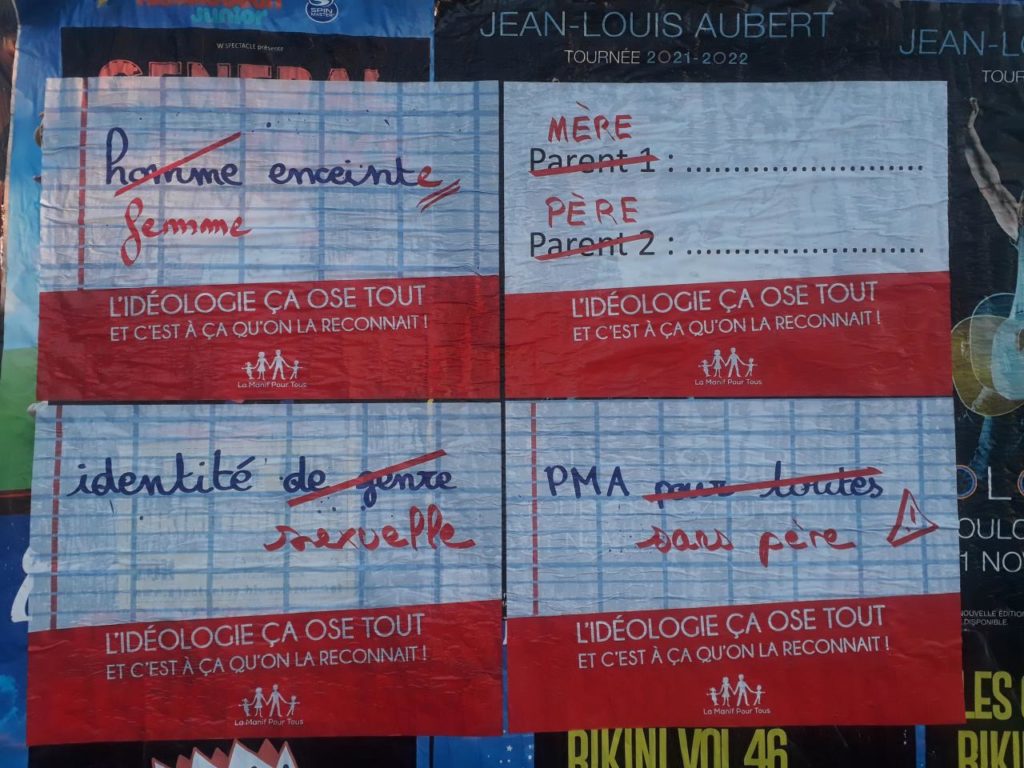 Junior
SPIN MASTER
W SPECTACLE présente
JEAN-LOUIS AUBERT
TOURNÉE 2021-2022
homme enceinte
femme
L'IDÉOLOGIE ÇA OSE TOUT
ET C'EST À ÇA QU'ON LA RECONNAIT !
La Manif Pour Tous
MÈRE
Parent 1 : ........................
PÈRE
Parent 2 : ........................
L'IDÉOLOGIE ÇA OSE TOUT
ET C'EST À ÇA QU'ON LA RECONNAIT !
La Manif Pour Tous
identité de genre
sexuelle
L'IDÉOLOGIE ÇA OSE TOUT
ET C'EST À ÇA QU'ON LA RECONNAIT !
La Manif Pour Tous
PMA pour toutes
sans père
!
L'IDÉOLOGIE ÇA OSE TOUT
ET C'EST À ÇA QU'ON LA RECONNAIT !
La Manif Pour Tous
JEAN-L
TOUR
1 NO
NOUVELLE ÉDITION
DISPONIBLE
LES
BIKINI VOL 46
BIKIN